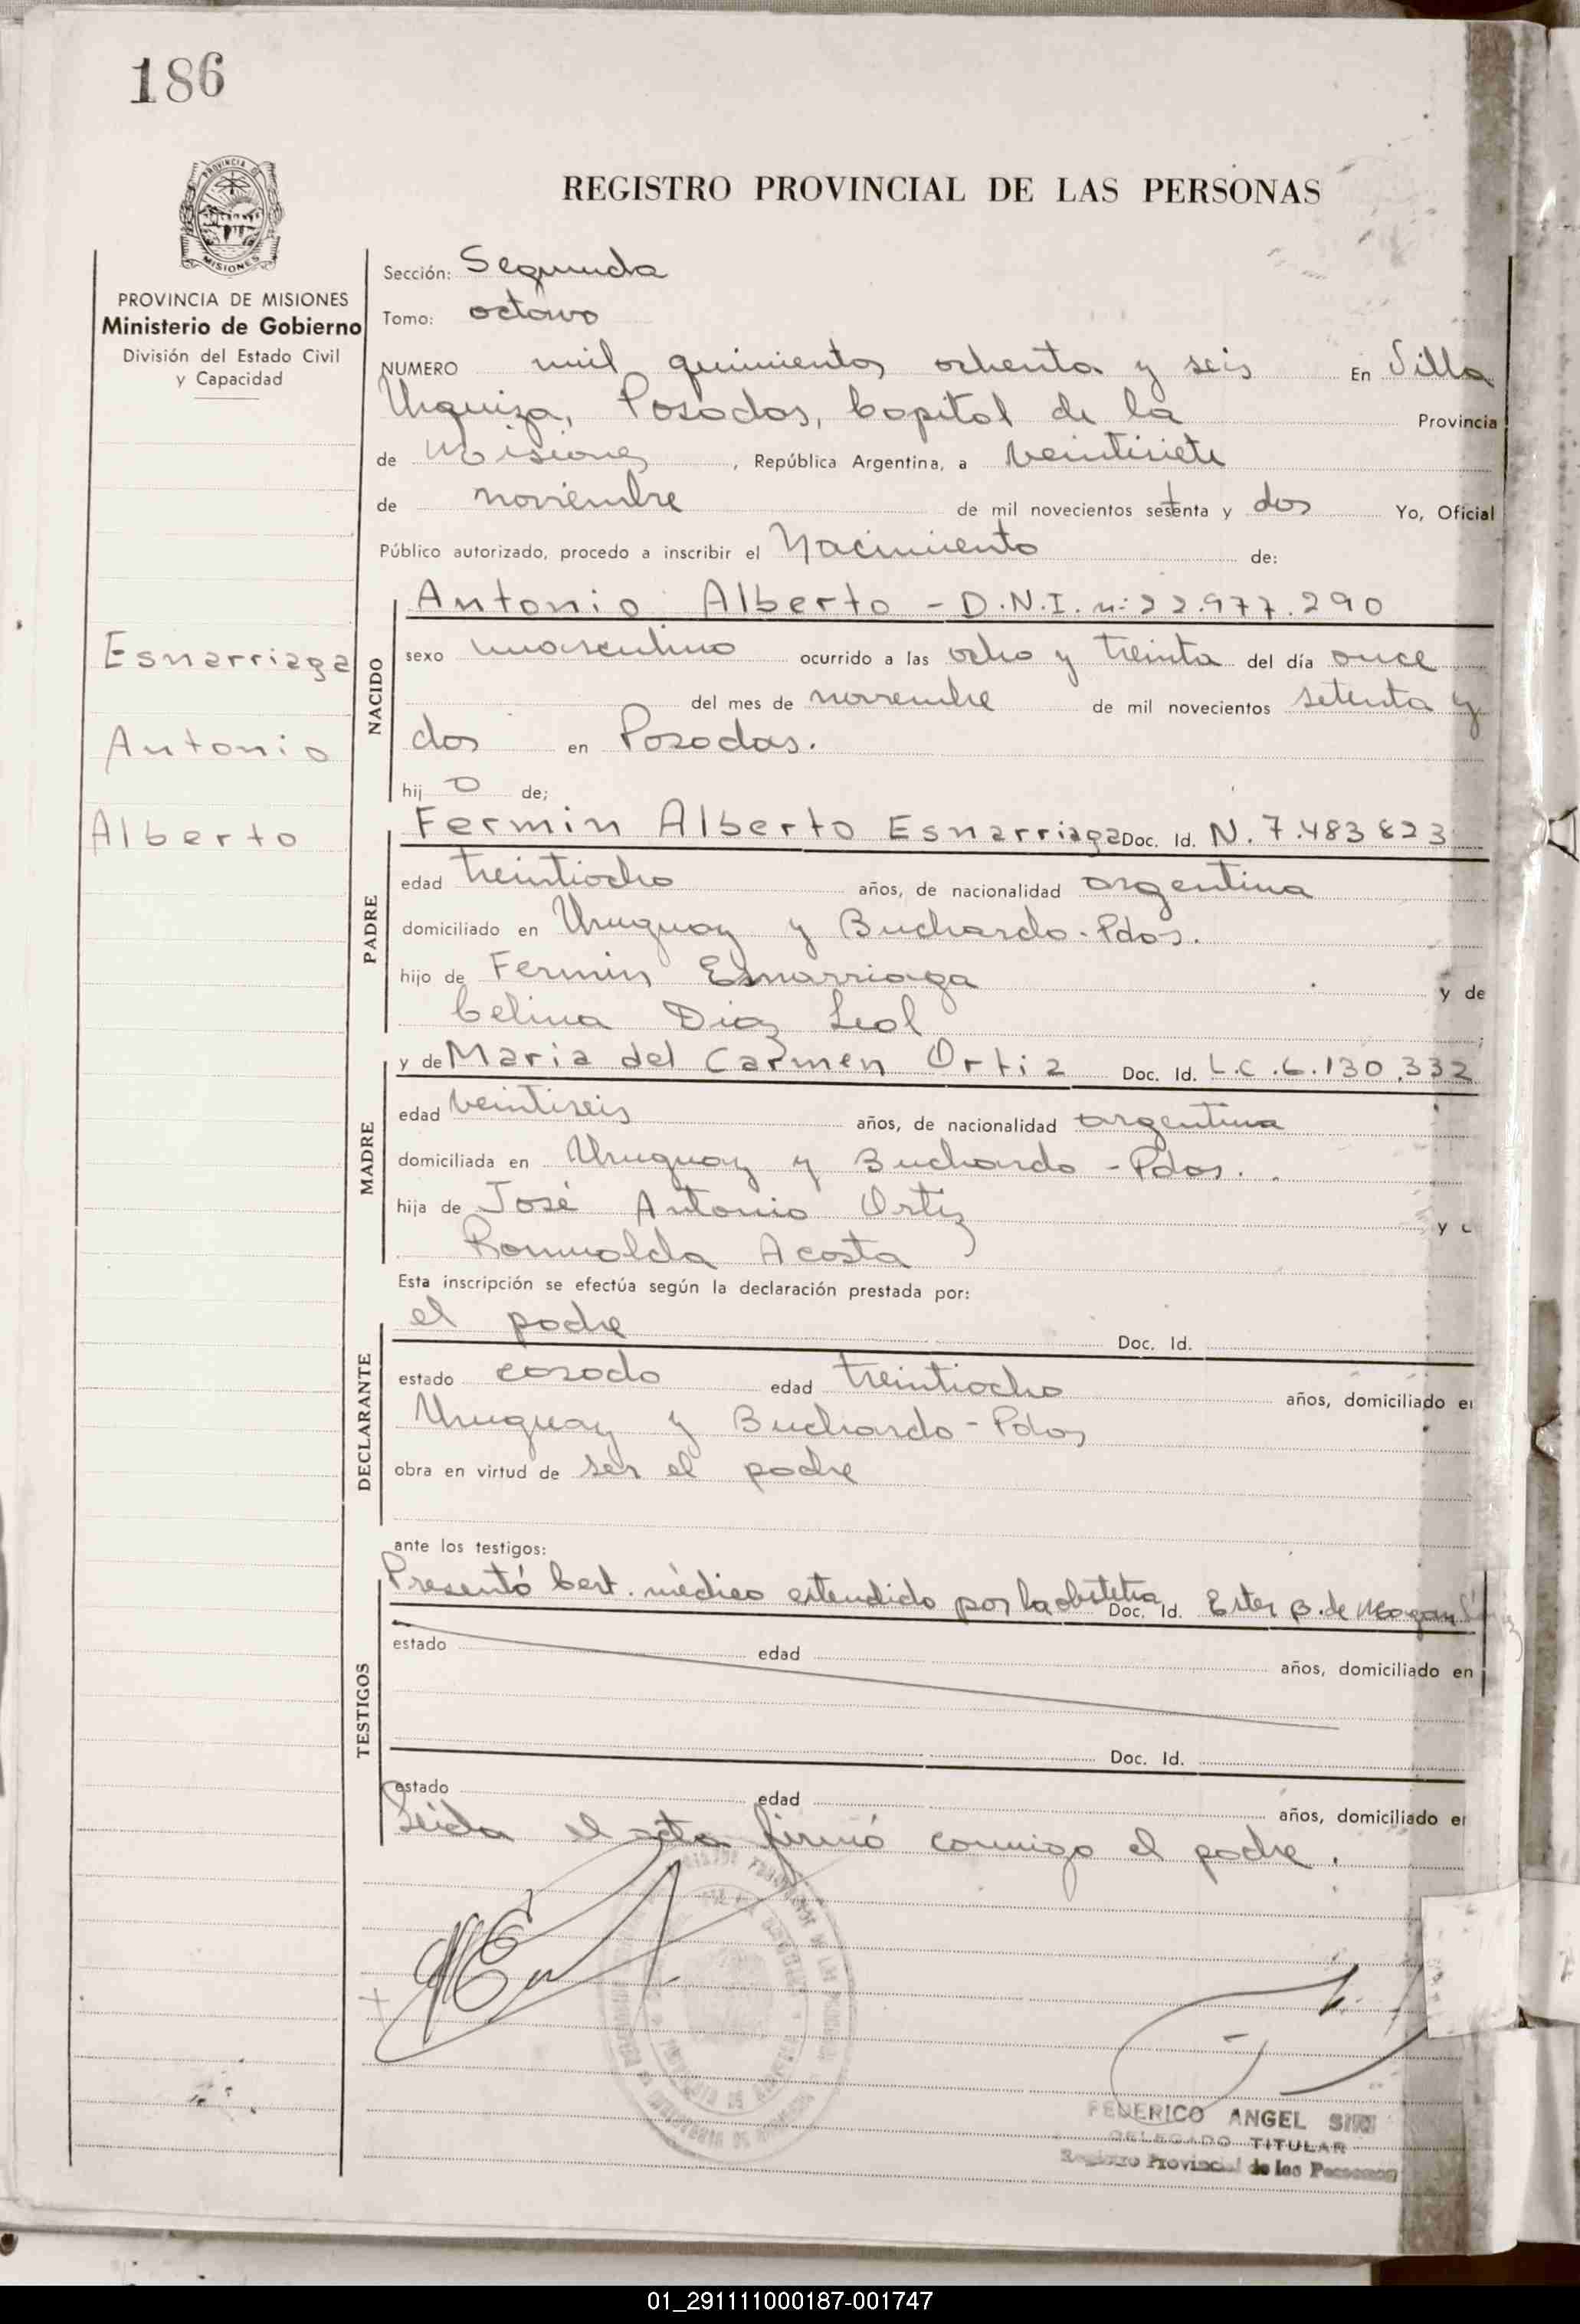 186
PROVINCIA DE
MISIONES
REGISTRO PROVINCIAL DE LAS PERSONAS
PROVINCIA DE MISIONES
Ministerio de Gobierno
División del Estado Civil
y Capacidad
Esnarriaga
Antonio
Alberto
Sección: Segunda
Tomo: octavo
NUMERO mil quinientos ochenta y seis En Villa
Urquiza, Posadas, Capital de la Provincia
de Misiones, República Argentina, a veintisiete
de noviembre de mil novecientos setenta y dos Yo, Oficial
Público autorizado, procedo a inscribir el Nacimiento de:
NACIDO
Antonio Alberto - D.N.I. n: 22.977.290
sexo masculino ocurrido a las ocho y treinta del día once
del mes de noviembre de mil novecientos setenta y
dos en Posadas.
hij o de;
PADRE
Fermin Alberto Esnarriaga Doc. Id. N. 7.483823
edad treintiocho años, de nacionalidad argentina
domiciliado en Uruguay y Buchardo - Pdas.
hijo de Fermin Esnarriaga y de
Celina Diaz Leal
MADRE
y de Maria del Carmen Ortiz Doc. Id. L.C. 6.130.332
edad veintiseis años, de nacionalidad argentina
domiciliada en Uruguay y Buchardo - Pdas.
hija de José Antonio Ortiz y
Romualda Acosta
Esta inscripción se efectúa según la declaración prestada por:
DECLARANTE
el padre Doc. Id.
estado casado edad treintiocho años, domiciliado en
Uruguay y Buchardo - Pdas
obra en virtud de ser el padre
ante los testigos:
TESTIGOS
Presentó Cert. médico extendido por la obstetra Doc. Id. Ester B. de
estado edad años, domiciliado en
Doc. Id.
estado edad años, domiciliado en
Leida el acta firmó conmigo el padre.
FEDERICO ANGEL
DELEGADO TITULAR
Registro Provincial de las Personas
01_291111000187-001747